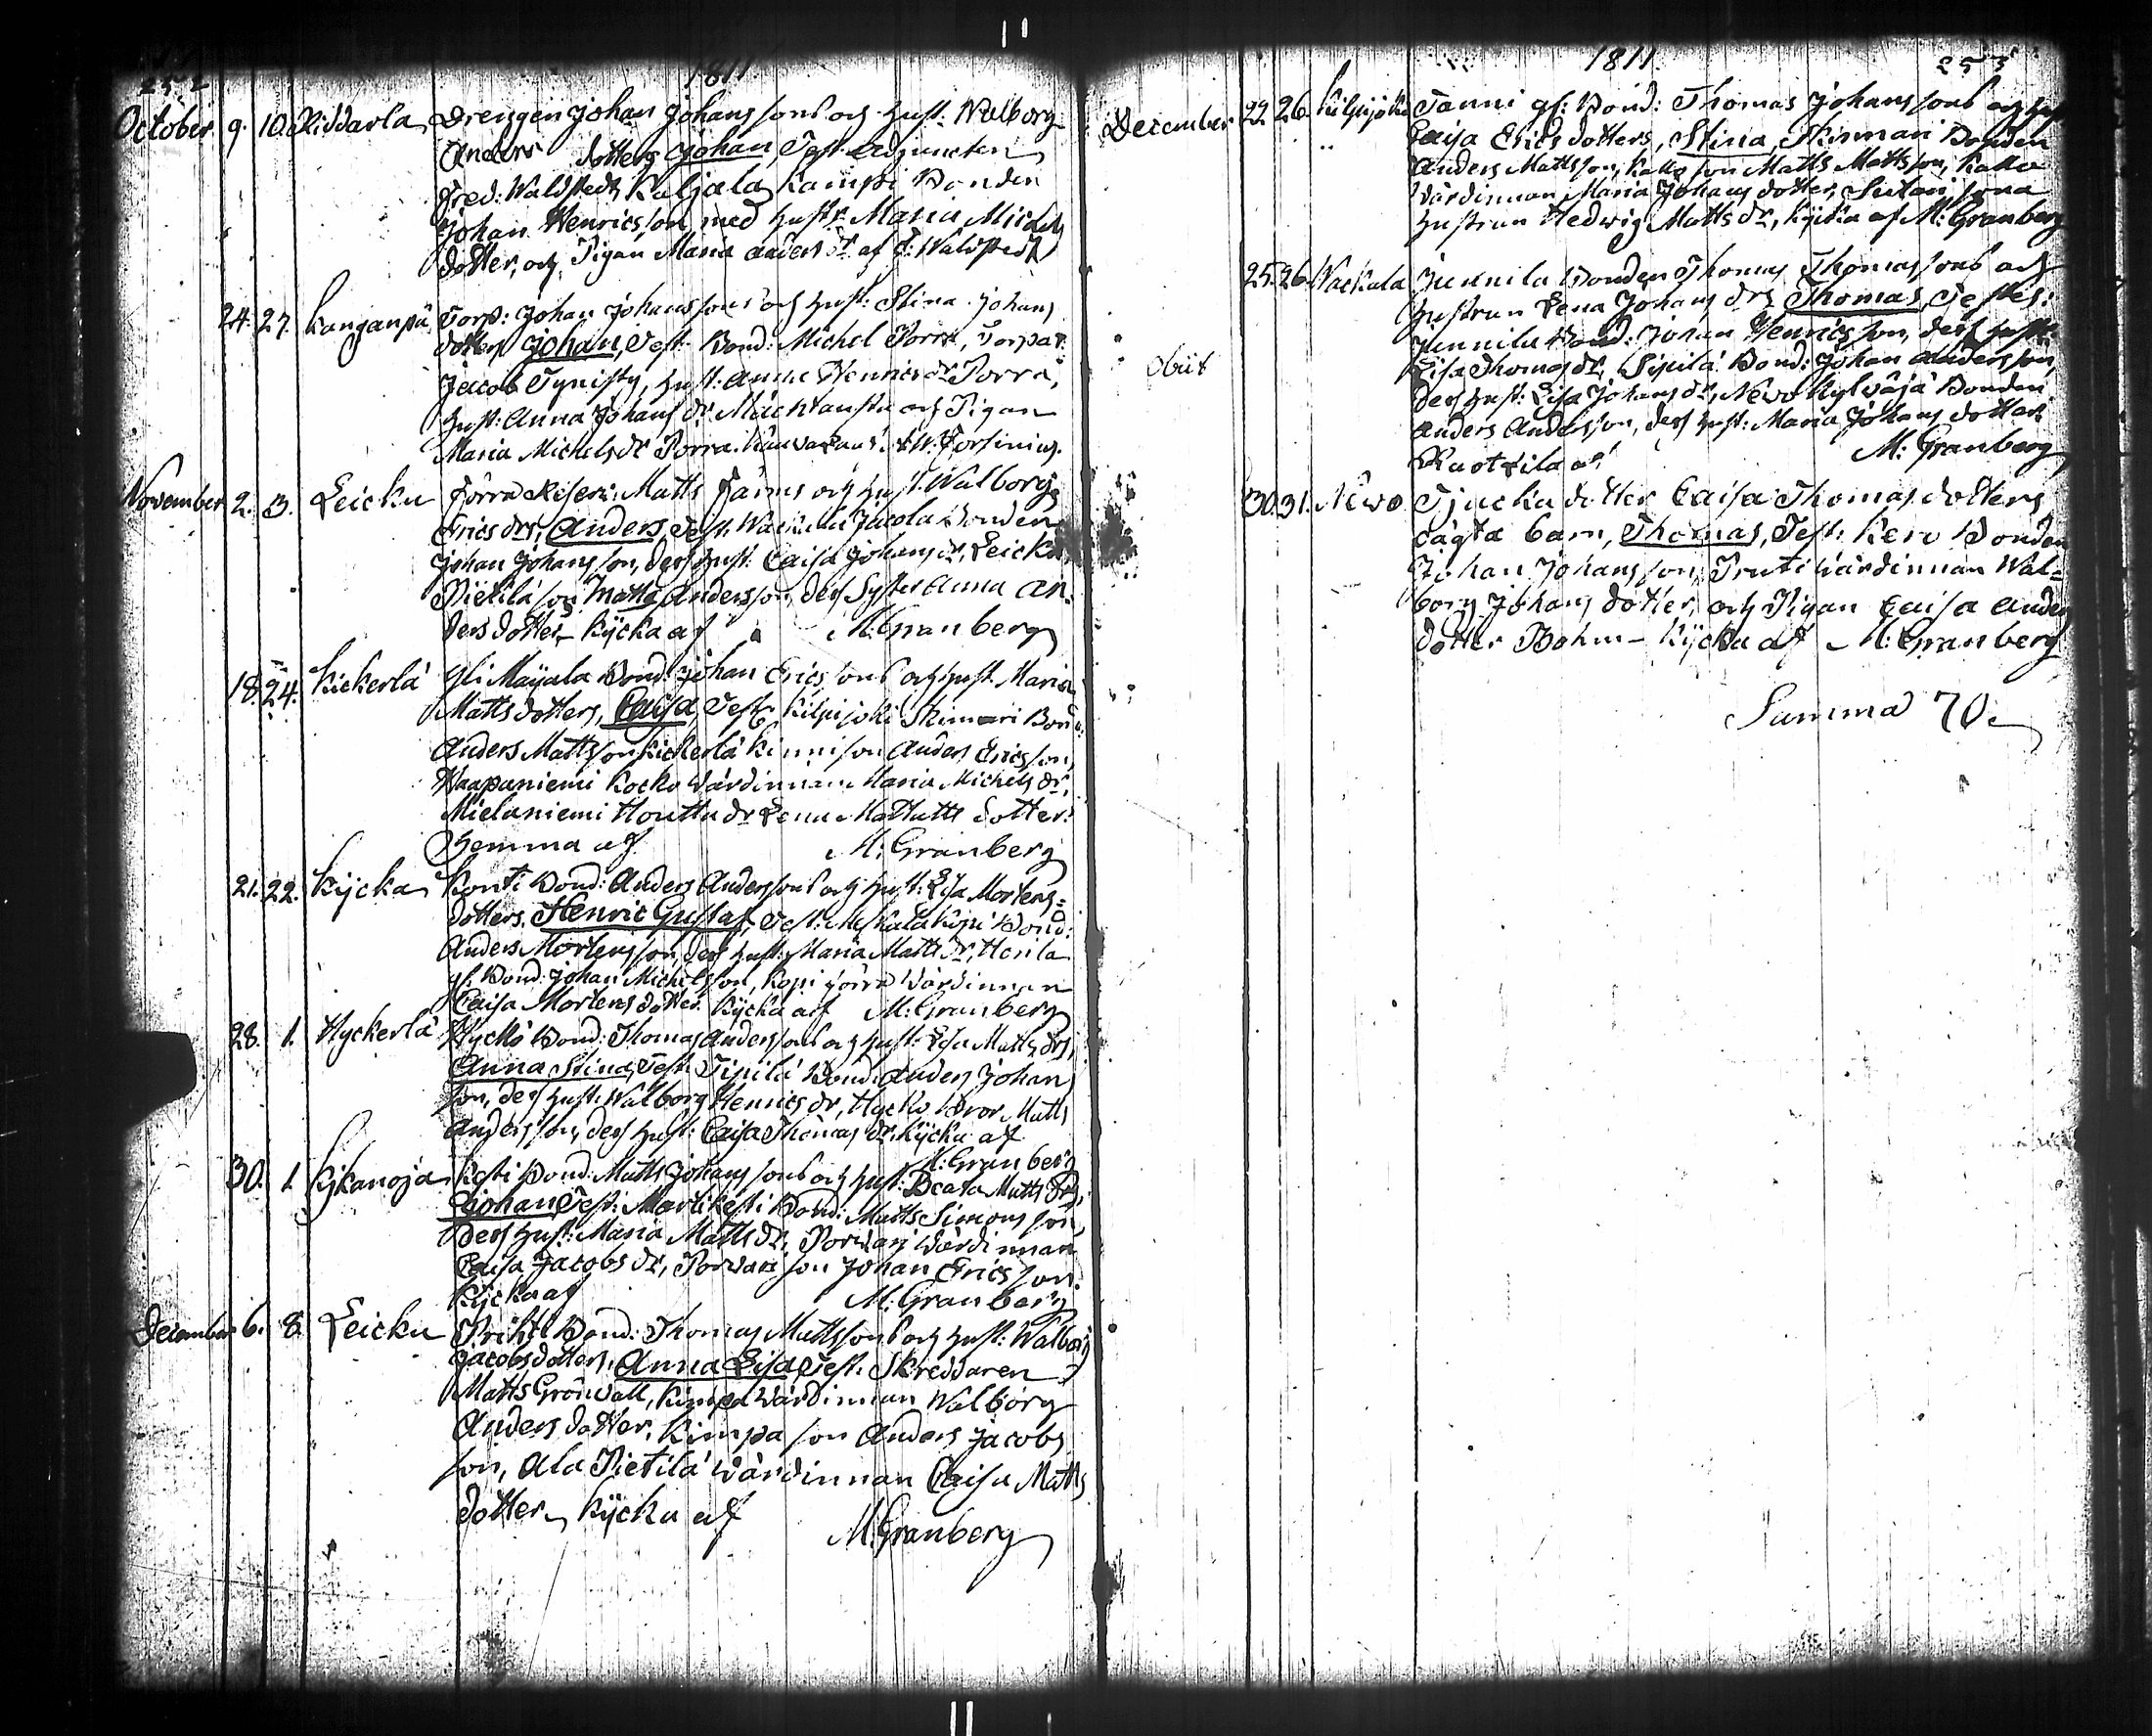 252
1811
October 9. 10. Riddarla Drengen Johan Johanssons och hust: Walborg
Anders dotters Johan, Test: Adjuncten
Fred: Waldstedt, Kaljala Kamppi Bonden
Johan Henricsson med hustr: Maria Michels
dotter, och Pigan Maria Anders dr. af F: Waldstedt
24. 27. Kanganpä Torp: Johan Johanssons och hust: Stina Johans
dotters Johan, Test: Bond: Michel Porra, Torpar:
Jacob Tynisty, hust: Anna Henrics dr Porra,
hust: Anna Johans dr och Pigan
Maria Michels dr Porra. Fortinius.
November 2. 3. Leicku Förra Matts Färms och hust. Walborg
Erics drs, Anders, Test: Jacola Bonden
Johan Johansson, dess hust: Caisa Johans dr, Leicku
Pietilä son Matts Andersson, dess Syster Anna An-
ders dotter Kÿcka af M: Granberg
18. 24. Kickerlä Yli Maÿala Bond: Johan Ericssons och hust. Maria
Matts dotters, Caisa, Test: Kilpijoki Skinnari Bond:
Anders Mattsson Kickerlä Kinni son Anders Ericsson,
Haapaniemi Kocko Wärdinnan Maria Michels dr,
Mielaniemi Houttu dr Lena Matts dotter.
Hemma af M: Granberg
21. 22. Kÿcka Konti Bond: Anders Anderssons och hust: Lisa Mortens-
dotters. Henric Gustaf, Test: Kopi Bond:
Anders Mortensson, dess hust: Maria Matts dr, Honla
gl. Bond: Johan Michelsson, Kopi förra Wärdinnan
Caisa Mortens dotter. Kÿcka af M: Granberg
28. 1. Hyckerlä Hyckö Bond: Thomas Anderssons och hust: Lisa Matts drs,
Anna Stina, Test: Sipilä Bond: Anders Johans
son, dess hust: Walborg Henrics dr, Hycko Bror Matts
Andersson, dess hust: Caisa Thomas dr. Kÿcka af
M: Granberg
30. 1. Kÿkanoja Kesti Bond: Matts Johanssons och hust: Beata Matts drs,
Johan, Test: Martikesti Bond: Matts Simonsson,
dess hust: Maria Matts dr, Porvari Wärdinnan
Caisa Jacobs dr, Porvari son Johan Ericsson.
Kÿcka af M: Granberg
December 6. 8. Leicku Prihti Bond: Thomas Mattssons och hust: Walborg
Jacobsdotters, Anna Lisa, Test: Skreddaren
Matts Grönwall, Kimpa Wärdinnan Walborg
Anders dotter, Kimpa son Anders Jacobs
son, Ala Pietilä Wärdinnan Caisa Matts
dotter, Kÿcka af M: Granberg
1811
253
December 22. 26. Kilpijoki Tanni gl: Bond: Thomas Johanssons och hust
Caisa Erics dotters, Stina, Skinnari Bonden
Anders Mattsson, Katto son Matts Mattsson, Katto
Wärdinnan Maria Johans dotter, Sutari sona
hustrun Hedwig Matts dr, Kÿcka af M: Granberg
25. 26. Wackala Junnila Bonden Thomas Thomassons och
hustrun Lena Johans drs Thomas, Testes:
Junnila Bond: Johan Henricsson, dess hustr:
obiit Lisa Thomas dr, Sipilä Bond: Johan Andersson,
dess hust: Lisa Johans dr, Nevo Kylväjä Bonden
Anders Andersson, dess hust: Maria Johans dotter.
Ruotzila af M: Granberg
30. 31. Nevo Tjucka dotter Caisa Thomas dotters
oägta barn, Thomas, Test: Kero Bonden
Johan Johansson, Pruti Wärdinnan Wal-
borg Johans dotter, och Pigan Caisa Anders
dotter Bohm - Kÿcka af M: Granberg
Summa 70.